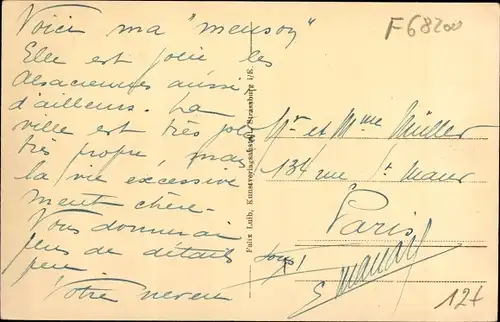 Voici ma "meuson"
Elle est jolie les
Alsaciennes aussi
d'ailleurs. La
ville est très jolie
très propre, mais
la vie excessive
ment chère.
Vous donnerai
plus de détails
peu
Votre neveu
F68200
Felix Luib, Kunstverlagsanstalt, Strassburg i/E.
Mr et Mme Müller
134 rue St Maur
Paris
12+